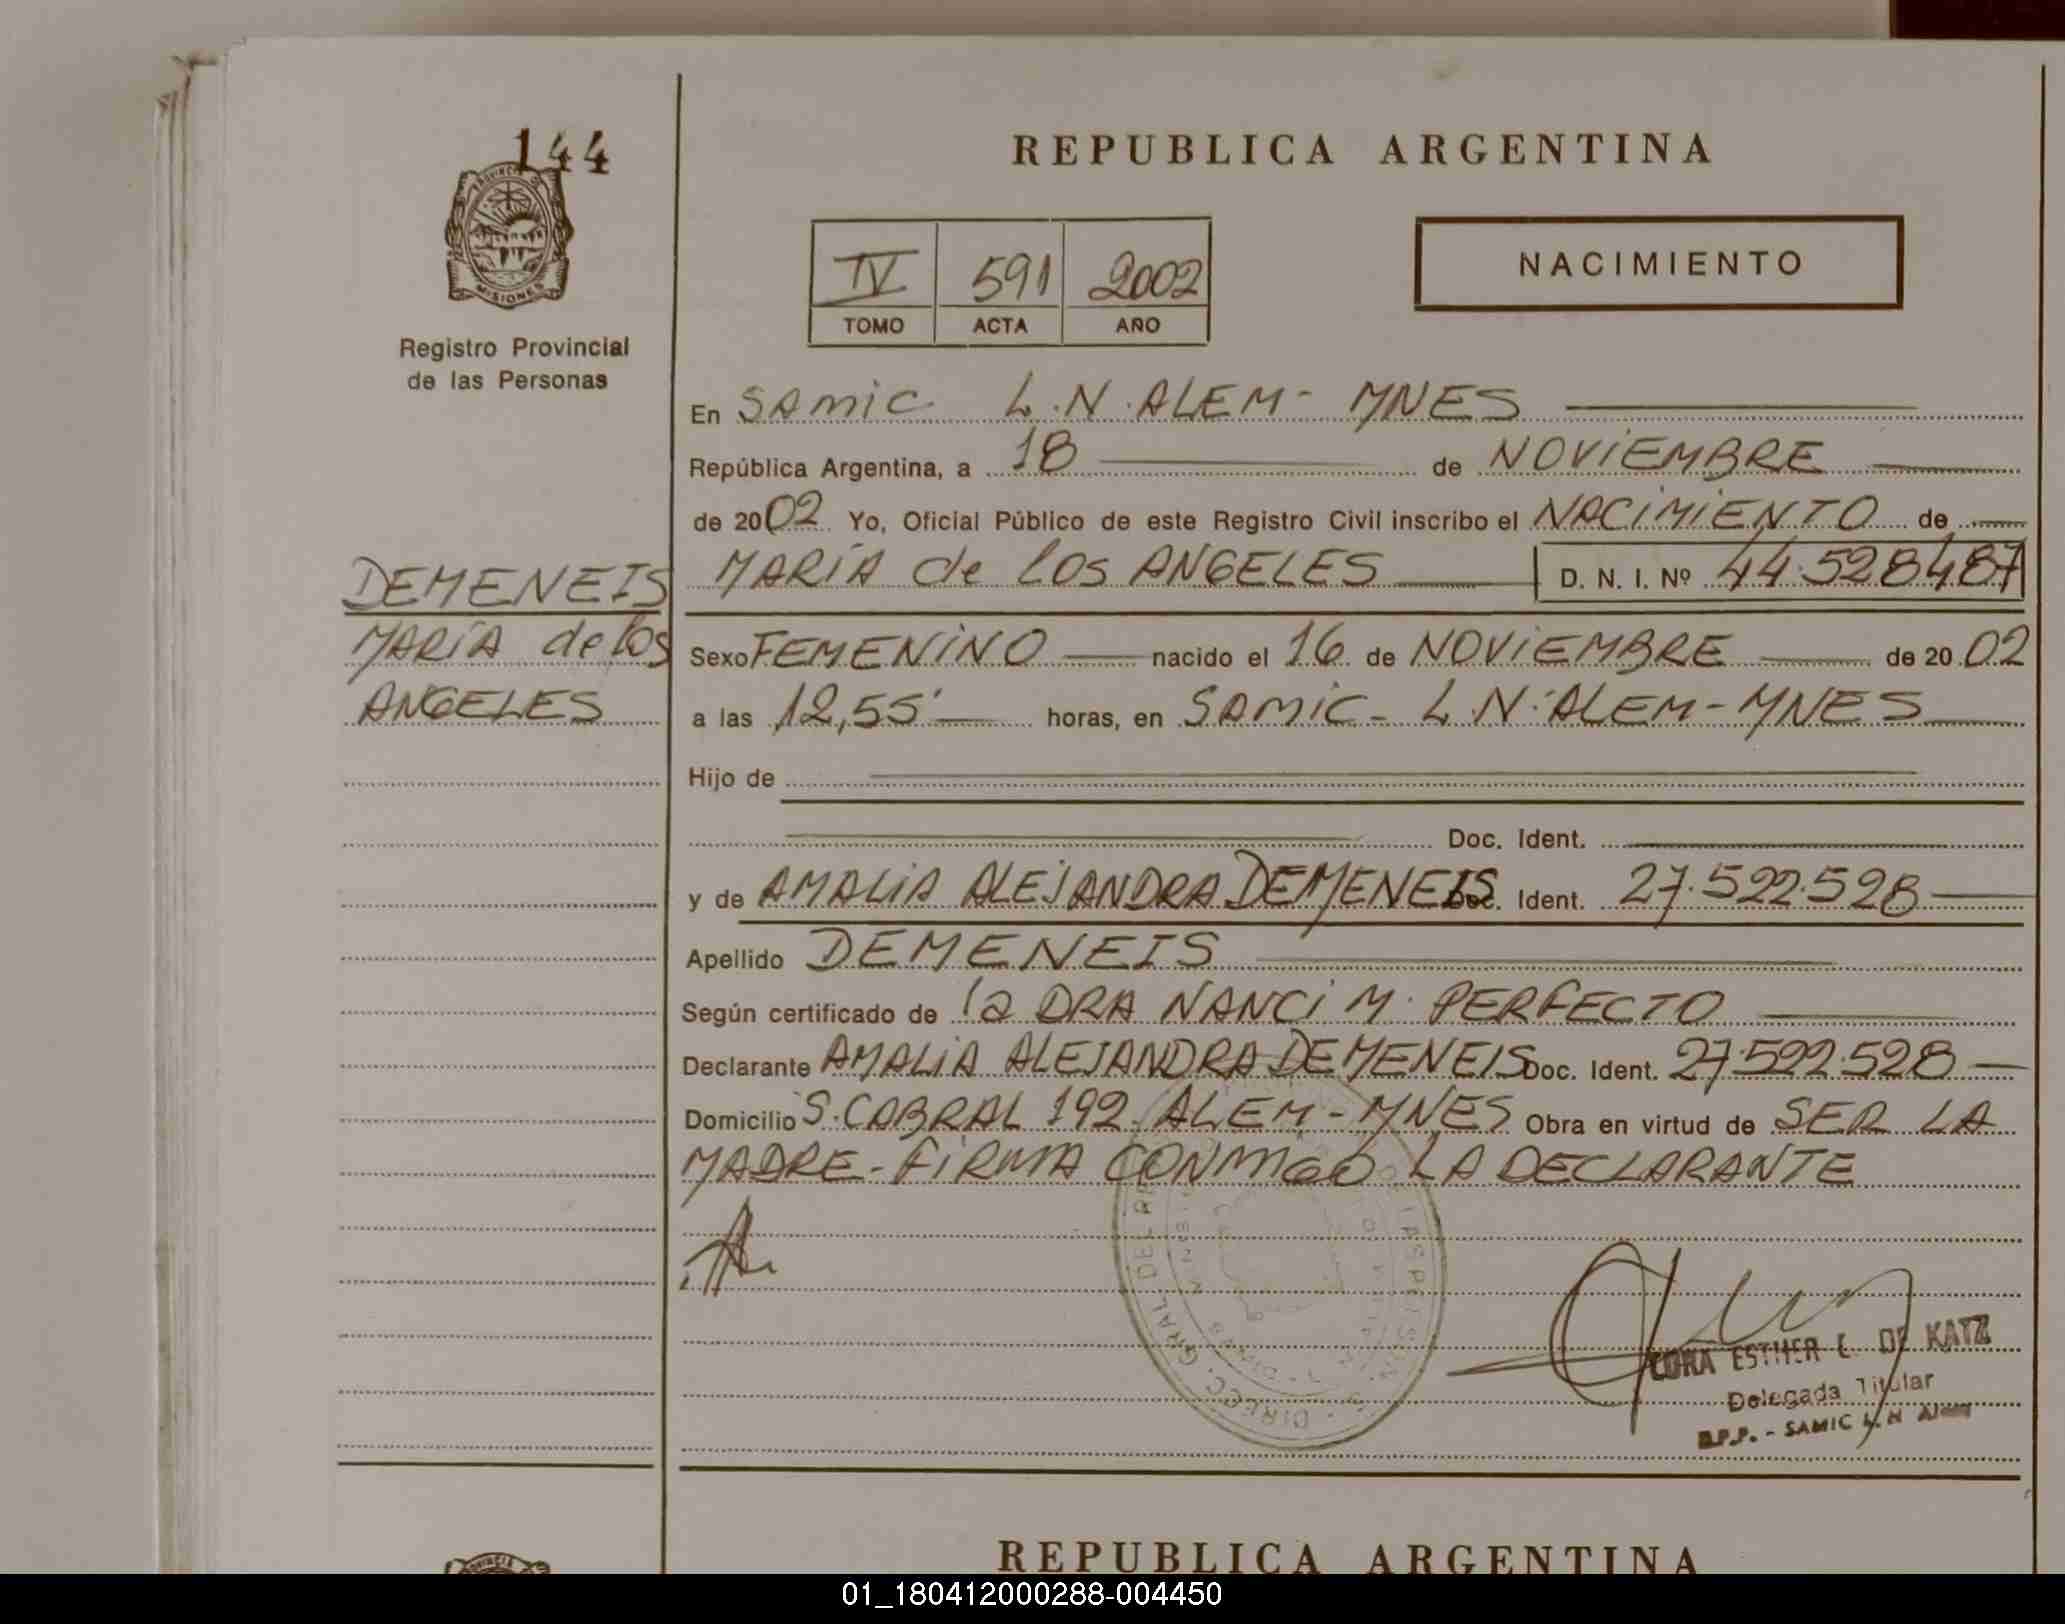 144
REPUBLICA ARGENTINA
PROVINCIA DE
MISIONES
Registro Provincial
de las Personas
IV 591 2002
TOMO ACTA AÑO
NACIMIENTO
En SAMIC L.N. ALEM - MNES
República Argentina, a 18 de NOVIEMBRE
de 2002 Yo, Oficial Público de este Registro Civil inscribo el NACIMIENTO de
MARÍA de los ANGELES D. N. I. Nº 44.528487
DEMENEIS
MARÍA de los
ANGELES
Sexo FEMENINO nacido el 16 de NOVIEMBRE de 2002
a las 12,55' horas, en SAMIC - L.N. ALEM - MNES
Hijo de
Doc. Ident.
y de AMALIA ALEJANDRA DEMENEIS Doc. Ident. 27.522.528
Apellido DEMENEIS
Según certificado de la DRA NANCI M. PERFECTO
Declarante AMALIA ALEJANDRA DEMENEIS Doc. Ident. 27.522.528
Domicilio S. CABRAL 192 ALEM - MNES Obra en virtud de SER LA
MADRE - FIRMA CONMIGO LA DECLARANTE
DIREC. GRAL. DEL
ESTHER L. DE KATZ
Delegada Titular
R.P.P. - SAMIC L. N. Alem
REPUBLICA ARGENTINA
01_180412000288-004450